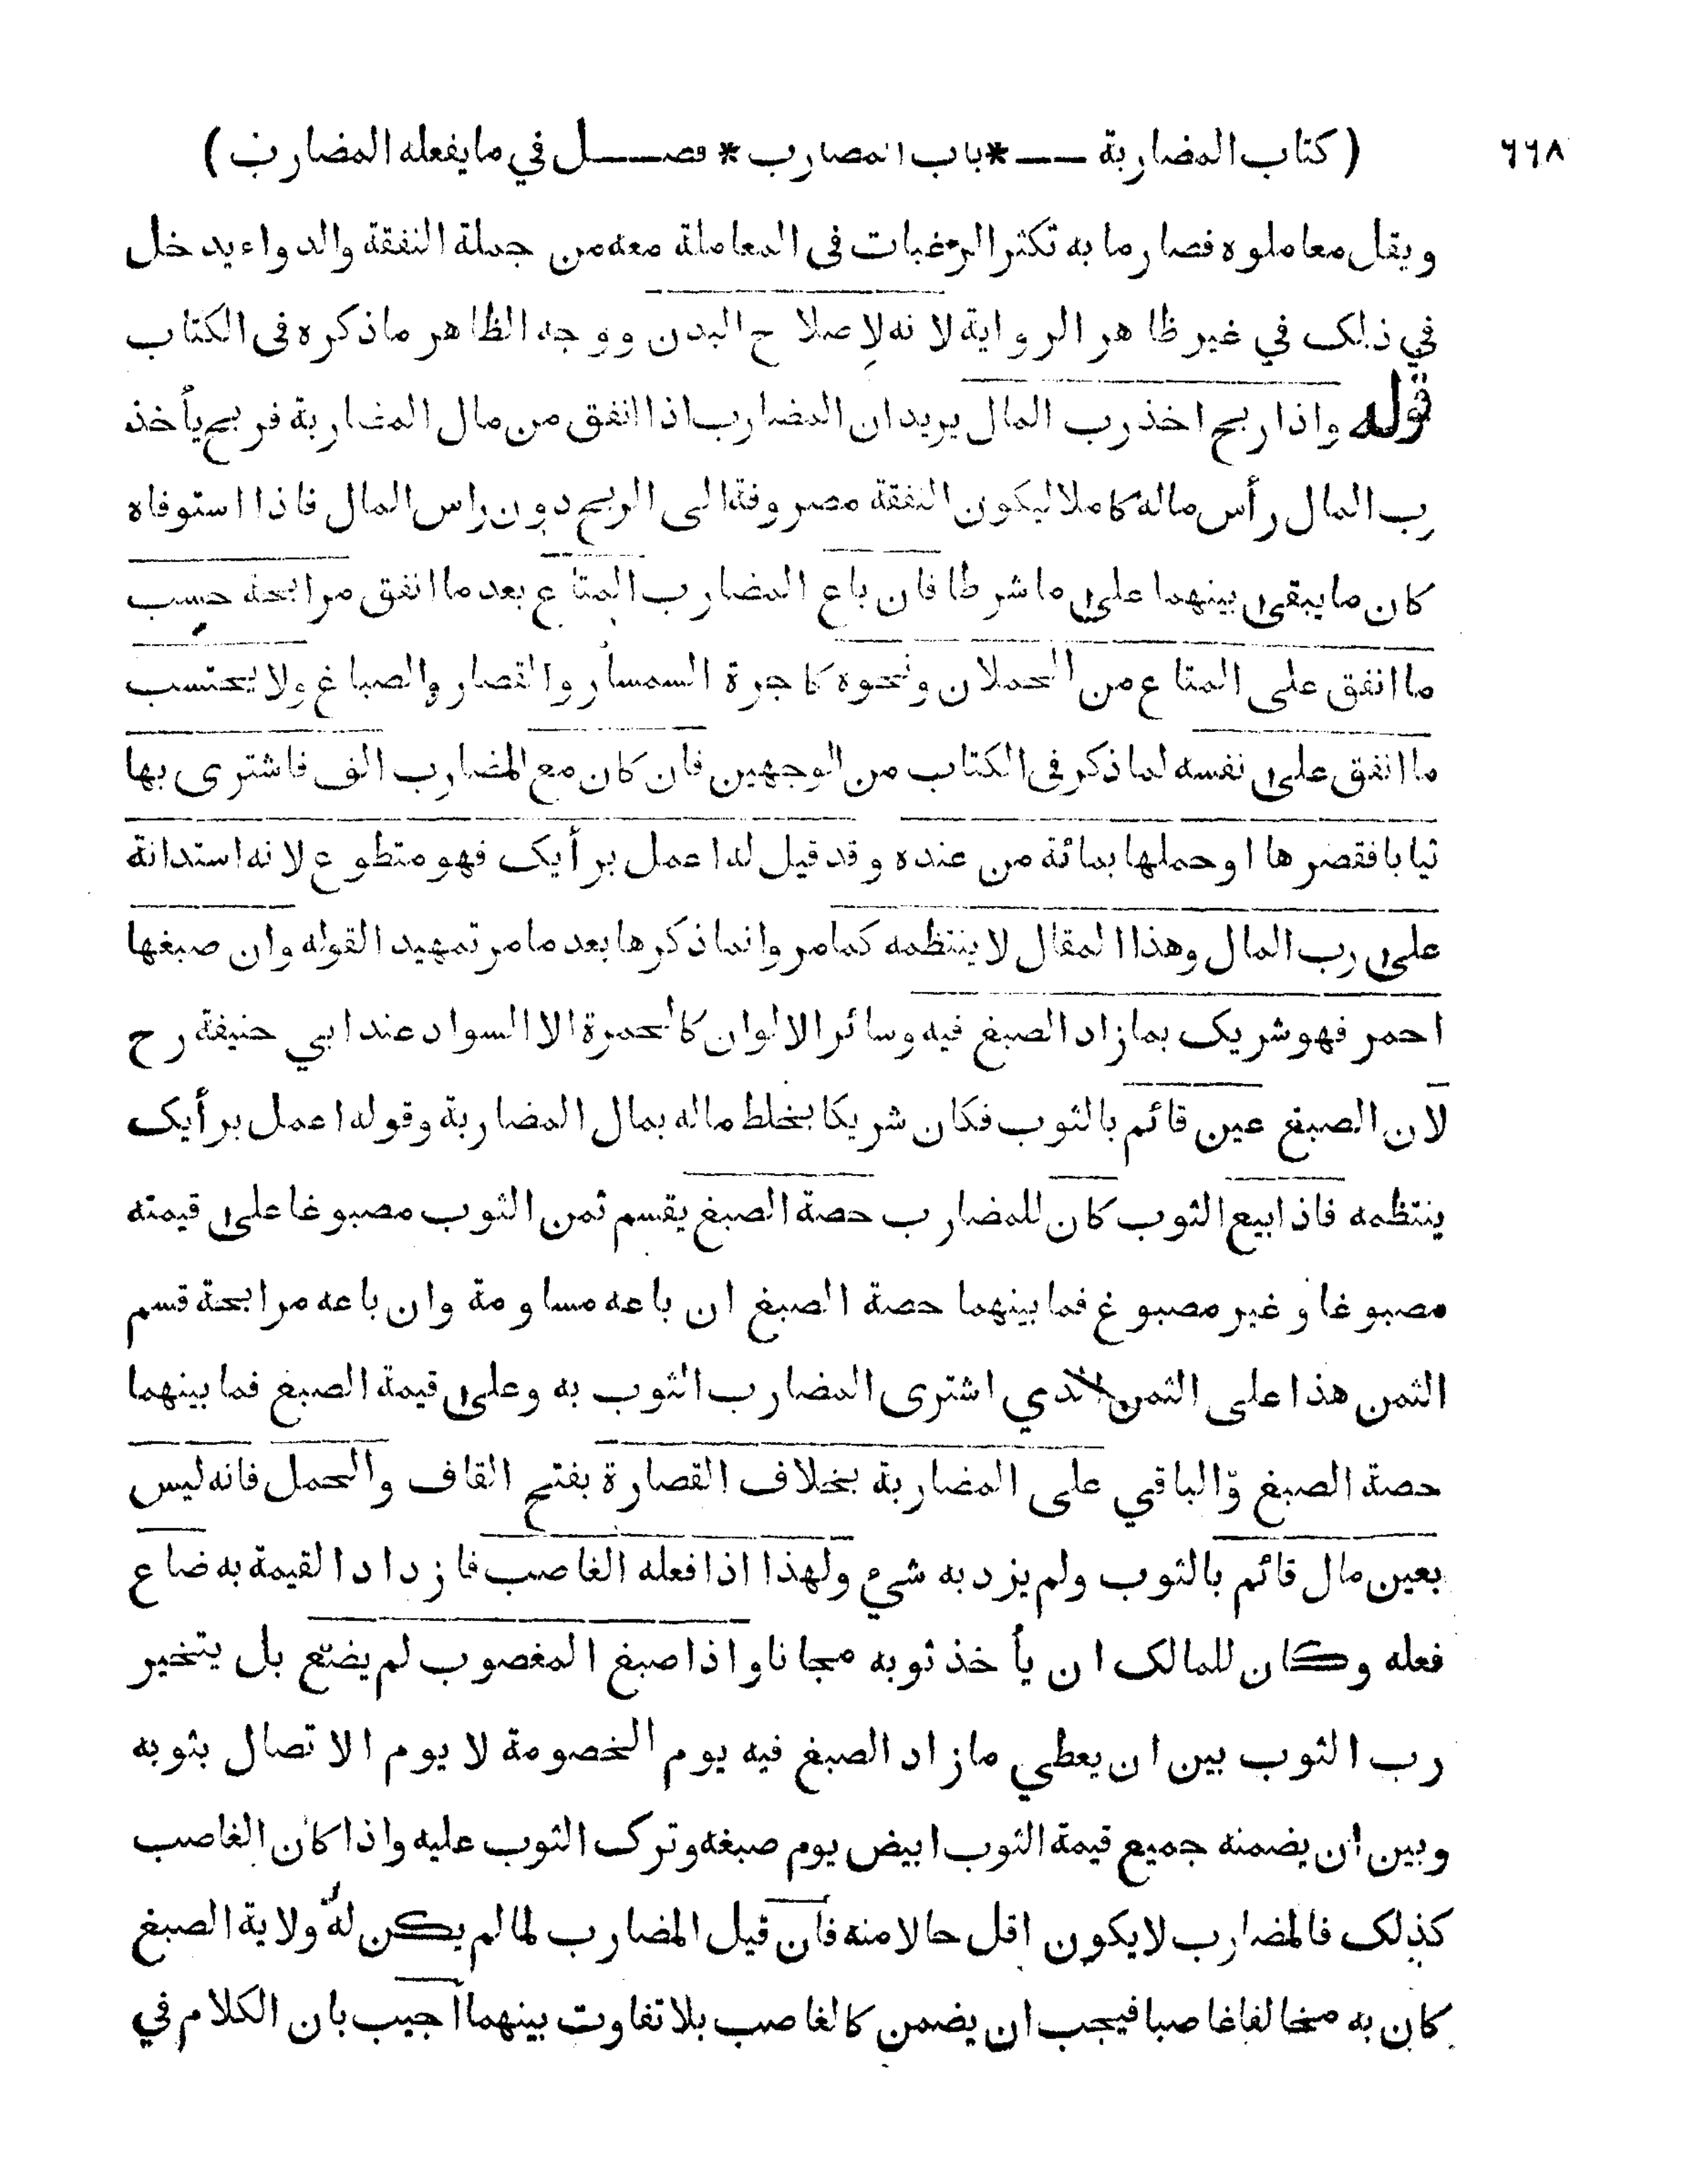 ٦٦٨ ( كتاب المضاربة ــــ * باب المضارب * فصـــل في ما يفعله المضارب )
ويقل معاملوه فصار ما به تكثر الرغبات فى المعاملة معه من جملة النفقة والدواء يدخل
في ذلك في غير ظاهر الرواية لانه لاصلاح البدن ووجه الظاهر ما ذكره فى الكتاب
قوله واذا ربح اخذ رب المال يريد ان المضارب اذا انفق من مال المضاربة فربح يأخذ
رب المال رأس ماله كاملا ليكون النفقة مصروفة الى الربح دون راس المال فاذا استوفاه
كان ما يبقى بينهما على ما شرطا فان باع المضارب المتاع بعد ما انفق مرابحة حسب
ما انفق على المتاع من الحملان ونحوه كاجرة السمسار والقصار والصباغ ولا يحتسب
ما انفق على نفسه لما ذكر فى الكتاب من الوجهين فان كان مع المضارب الف فاشترى بها
ثيابا فقصرها او حملها بمائة من عنده وقد قيل له اعمل برأيك فهو متطوع لانه استدانة
على رب المال وهذا المقال لا ينتظمه كما مر وانما ذكرها بعد ما مر تمهيد القوله وان صبغها
احمر فهو شريك بما زاد الصبغ فيه وسائر الالوان كالحمرة الا السواد عند ابي حنيفة رح
لان الصبغ عين قائم بالثوب فكان شريكا بخلط ماله بمال المضاربة وقوله اعمل برأيك
ينتظمه فاذا بيع الثوب كان للمضارب حصة الصبغ يقسم ثمن الثوب مصبوغا على قيمته
مصبوغا وغير مصبوغ فما بينهما حصة الصبغ ان باعه مساومة وان باعه مرابحة قسم
الثمن هذا على الثمن الذي اشترى المضارب الثوب به وعلى قيمة الصبغ فما بينهما
حصة الصبغ والباقي على المضاربة بخلاف القصارة بفتح القاف والحمل فانه ليس
بعين مال قائم بالثوب ولم يزد به شيء ولهذا اذا فعله الغاصب فازداد القيمة به ضاع
فعله وكان للمالك ان يأخذ ثوبه مجانا واذا صبغ المغصوب لم يضع بل يتخير
رب الثوب بين ان يعطي ما زاد الصبغ فيه يوم الخصومة لا يوم الاتصال بثوبه
وبين ان يضمنه جميع قيمة الثوب ابيض يوم صبغه وترك الثوب عليه واذا كان الغاصب
كذلك فالمضارب لا يكون اقل حالا منه فان قيل المضارب لما لم يكن له ولاية الصبغ
كان به مخالفا غاصبا فيجب ان يضمن كالغاصب بلا تفاوت بينهما أجيب بان الكلام في